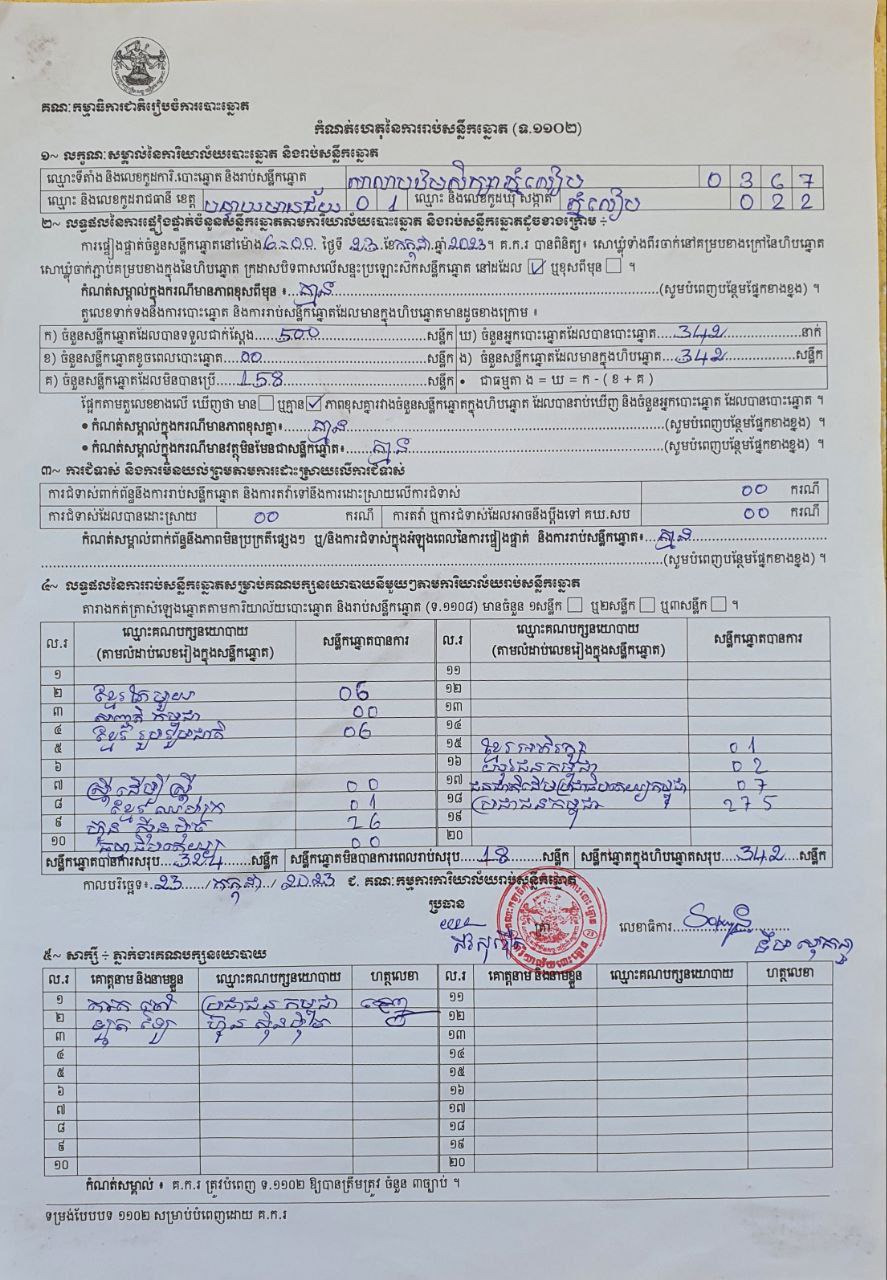 គណៈកម្មាធិការជាតិរៀបចំការបោះឆ្នោត
កំណត់ហេតុនៃការរាប់សន្លឹកឆ្នោត (ទ.១១០២)
១~ លក្ខណៈសម្គាល់នៃការិយាល័យបោះឆ្នោត និងរាប់សន្លឹកឆ្នោត
ឈ្មោះទីតាំង និងលេខកូដការិ.បោះឆ្នោត និងរាប់សន្លឹកឆ្នោត សាលាបឋមសិក្សាភ្នំលៀប 0 3 6 7
ឈ្មោះ និងលេខកូដរាជធានី ខេត្ត បន្ទាយមានជ័យ 0 1 ឈ្មោះ និងលេខកូដឃុំ សង្កាត់ ភ្នំលៀប 0 2 2
២~ លទ្ធផលនៃការផ្ទៀងផ្ទាត់ចំនួនសន្លឹកឆ្នោតតាមការិយាល័យបោះឆ្នោត និងរាប់សន្លឹកឆ្នោតដូចខាងក្រោម ÷
ការផ្ទៀងផ្ទាត់ចំនួនសន្លឹកឆ្នោតនៅម៉ោង ថ្ងៃទី 23 ខែ កក្កដា ឆ្នាំ 2023។ គ.ក.រ បានពិនិត្យ៖ សោឃ្លុំទាំងពីរចាក់នៅគម្របខាងក្រៅនៃហិបឆ្នោត
សោឃ្លុំចាក់ភ្ជាប់គម្របខាងក្នុងនៃហិបឆ្នោត ក្រដាសបិទពាសលើសន្ទះប្រឡោះស៊កសន្លឹកឆ្នោត នៅដដែល ☑ ឬខុសពីមុន ☐ ។
កំណត់សម្គាល់ក្នុងករណីមានភាពខុសពីមុន ៖ គ្មាន (សូមបំពេញបន្ថែមផ្នែកខាងខ្នង) ។
តួលេខទាក់ទងនឹងការបោះឆ្នោត និងការរាប់សន្លឹកឆ្នោតដែលមានក្នុងហិបឆ្នោតមានដូចខាងក្រោម ៖
ក) ចំនួនសន្លឹកឆ្នោតដែលបានទទួលជាក់ស្តែង 500 សន្លឹក ឃ) ចំនួនអ្នកបោះឆ្នោតដែលបានបោះឆ្នោត 342 នាក់
ខ) ចំនួនសន្លឹកឆ្នោតខូចពេលបោះឆ្នោត 00 សន្លឹក ង) ចំនួនសន្លឹកឆ្នោតដែលមានក្នុងហិបឆ្នោត 342 សន្លឹក
គ) ចំនួនសន្លឹកឆ្នោតដែលមិនបានប្រើ 158 សន្លឹក • ជាធម្មតា ង = ឃ = ក - ( ខ + គ )
ផ្អែកតាមតួលេខខាងលើ ឃើញថា មាន ☐ ឬគ្មាន ☑ ភាពខុសគ្នារវាងចំនួនសន្លឹកឆ្នោតក្នុងហិបឆ្នោត ដែលបានរាប់ឃើញ និងចំនួនអ្នកបោះឆ្នោត ដែលបានបោះឆ្នោត ។
• កំណត់សម្គាល់ក្នុងករណីមានភាពខុសគ្នា៖ គ្មាន (សូមបំពេញបន្ថែមផ្នែកខាងខ្នង) ។
• កំណត់សម្គាល់ក្នុងករណីមានវត្ថុមិនមែនជាសន្លឹកឆ្នោត៖ គ្មាន (សូមបំពេញបន្ថែមផ្នែកខាងខ្នង) ។
៣~ ការជំទាស់ និងការមិនយល់ព្រមតាមការដោះស្រាយលើការជំទាស់
ការជំទាស់ពាក់ព័ន្ធនឹងការរាប់សន្លឹកឆ្នោត និងការតវ៉ាទៅនឹងការដោះស្រាយលើការជំទាស់ 00 ករណី
ការជំទាស់ដែលបានដោះស្រាយ 00 ករណី ការតវ៉ា ឬការជំទាស់ដែលអាចនឹងប្តឹងទៅ គឃ.សប 00 ករណី
កំណត់សម្គាល់ពាក់ព័ន្ធនឹងភាពមិនប្រក្រតីផ្សេងៗ ឬ/និងការជំទាស់ក្នុងអំឡុងពេលនៃការផ្ទៀងផ្ទាត់ និងការរាប់សន្លឹកឆ្នោត៖ គ្មាន
(សូមបំពេញបន្ថែមផ្នែកខាងខ្នង) ។
៤~ លទ្ធផលនៃការរាប់សន្លឹកឆ្នោតសម្រាប់គណបក្សនយោបាយនីមួយៗតាមការិយាល័យរាប់សន្លឹកឆ្នោត
តារាងកត់ត្រាសំឡេងឆ្នោតតាមការិយាល័យបោះឆ្នោត និងរាប់សន្លឹកឆ្នោត (ទ.១១០៨) មានចំនួន ១សន្លឹក ☐ ឬ២សន្លឹក ☐ ឬ៣សន្លឹក ☐ ។
ល.រ ឈ្មោះគណបក្សនយោបាយ (តាមលំដាប់លេខរៀងក្នុងសន្លឹកឆ្នោត) សន្លឹកឆ្នោតបានការ ល.រ ឈ្មោះគណបក្សនយោបាយ (តាមលំដាប់លេខរៀងក្នុងសន្លឹកឆ្នោត) សន្លឹកឆ្នោតបានការ
១ ១១
២ ខ្មែរតែមួយ 06 ១២
៣ សញ្ជាតិកម្ពុជា 00 ១៣
៤ ខ្មែររួបរួមជាតិ 06 ១៤
៥ ១៥ ខ្មែរអភិរក្ស 01
៦ ១៦ កម្ពុជា 02
៧ ស្ត្រីដើម្បីស្ត្រី 00 ១៧ 07
៨ ខ្មែរ 01 ១៨ ប្រជាជនកម្ពុជា 275
៩ ហ្វ៊ុនស៊ិនប៉ិច 26 ១៩
១០ 00 ២០
សន្លឹកឆ្នោតបានការសរុប 324 សន្លឹក សន្លឹកឆ្នោតមិនបានការពេលរាប់សរុប 18 សន្លឹក សន្លឹកឆ្នោតក្នុងហិបឆ្នោតសរុប 342 សន្លឹក
កាលបរិច្ឆេទ៖ 23 / កក្កដា / 2023 ជ. គណៈកម្មការការិយាល័យរាប់សន្លឹកឆ្នោត
ប្រធាន
លេខាធិការ
៥~ សាក្សី ÷ ភ្នាក់ងារគណបក្សនយោបាយ
ល.រ គោត្តនាម និងនាមខ្លួន ឈ្មោះគណបក្សនយោបាយ ហត្ថលេខា ល.រ គោត្តនាម និងនាមខ្លួន ឈ្មោះគណបក្សនយោបាយ ហត្ថលេខា
១ ប្រជាជនកម្ពុជា ១១
២ ហ្វ៊ុនស៊ិនប៉ិច ១២
៣ ១៣
៤ ១៤
៥ ១៥
៦ ១៦
៧ ១៧
៨ ១៨
៩ ១៩
១០ ២០
កំណត់សម្គាល់ ៖ គ.ក.រ ត្រូវបំពេញ ទ.១១០២ ឱ្យបានត្រឹមត្រូវ ចំនួន ៣ច្បាប់ ។
ទម្រង់បែបបទ ១១០២ សម្រាប់បំពេញដោយ គ.ក.រ